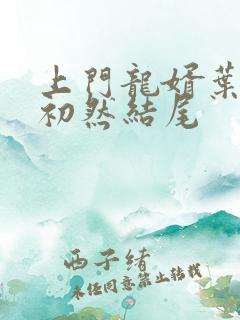 上門龍婿葉
初然結尾
西子緒
未任同意禁止转载